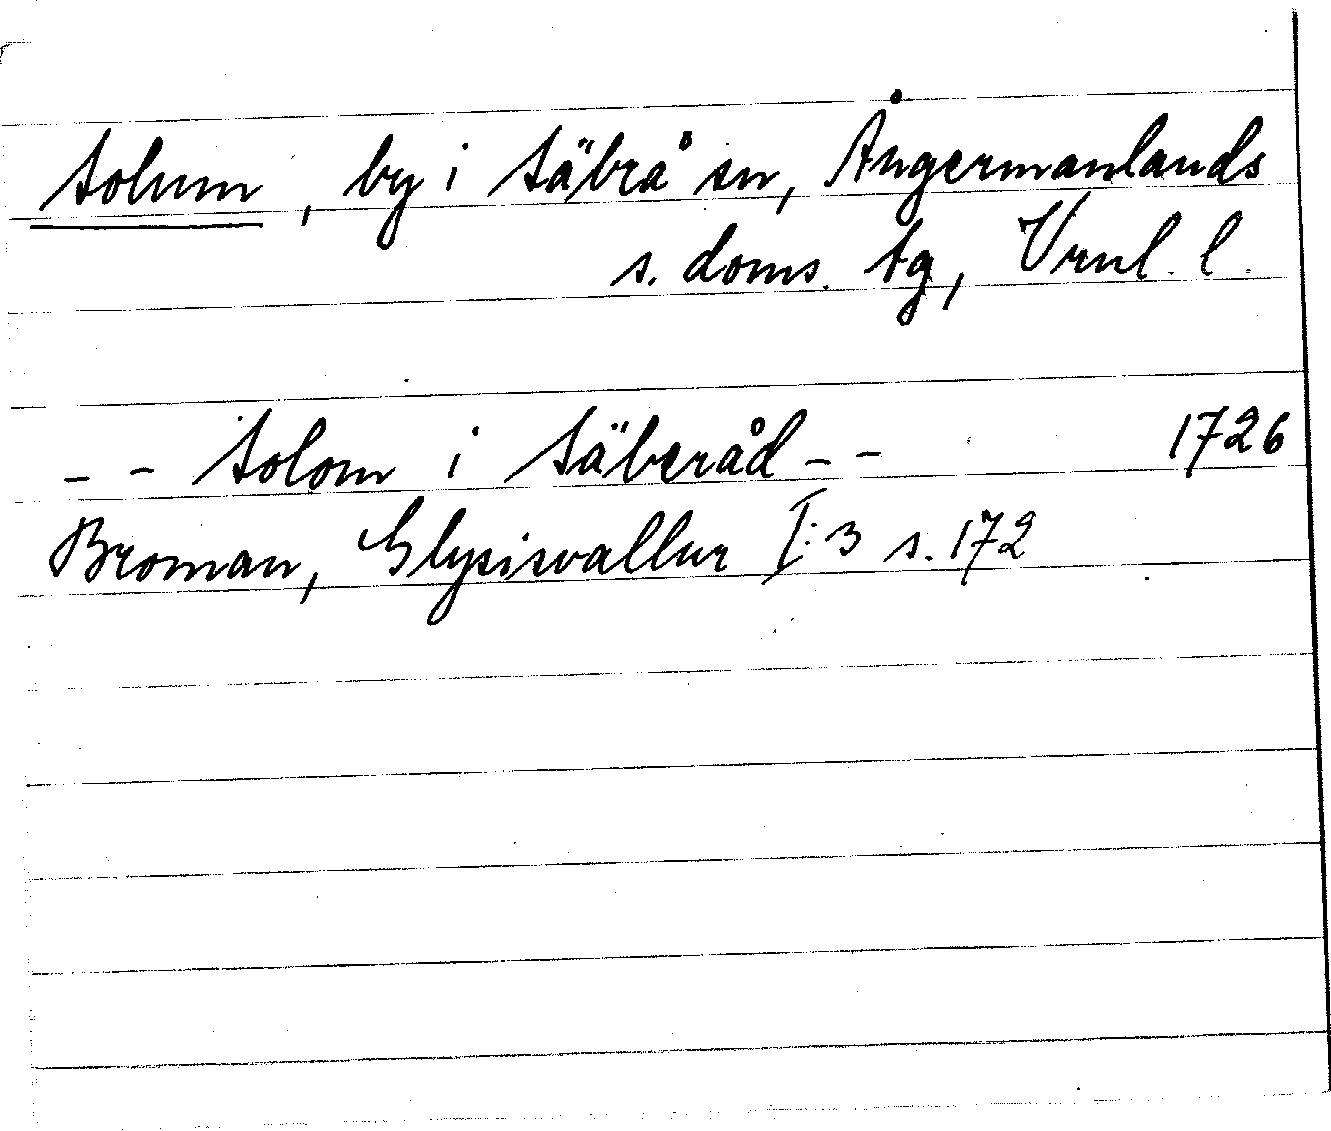 Solum, by i Säbrå sn, Ångermanlands
s. doms. tg, Vrnl. l.
- - Solom i Säberåd - - 1726
Broman, Glysisvallur I:3 s. 172